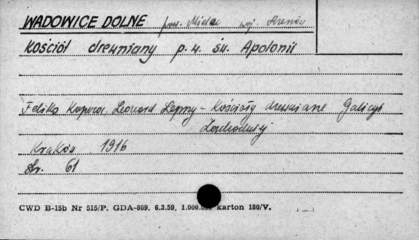 WADOWICE DOLNE pow. Mielec woj. Rzeszów
Kościół drewniany p.w. św. Apolonii
Feliks Kopera, Leonard Lepszy - Kościoły drewniane Galicyi
Zachodniej
Kraków 1916
str. 61
CWD B-15b Nr 515/P. GDA-809. 6.3.59. 1.000.000 karton 180/V.